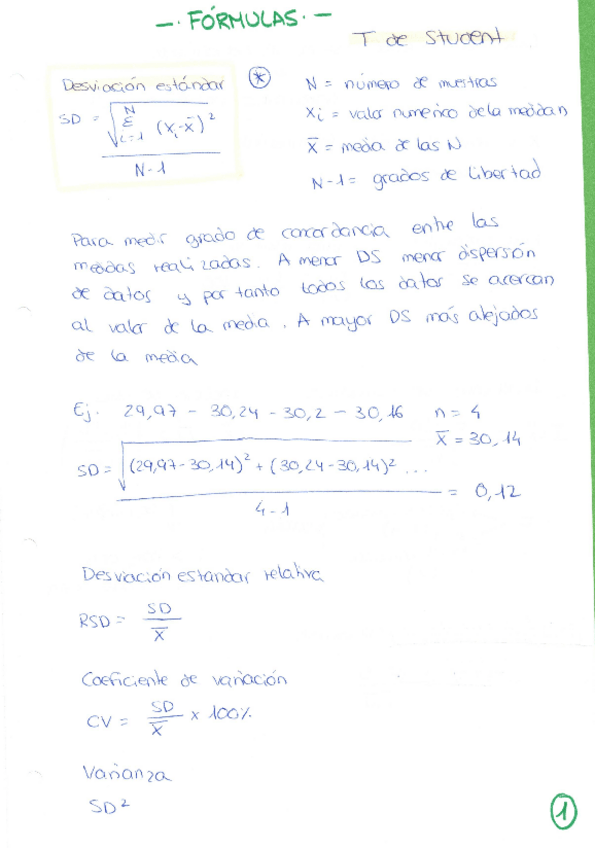 —. FÓRMULAS. —
T de Student
Desviación estándar *
SD = √ N Σ i=1 (xᵢ-x̄)²
N-1
N = número de muestras
xᵢ = valor numérico de la medida
x̄ = media de las N
N-1 = grados de libertad
Para medir grado de concordancia entre las
medidas realizadas. A menor DS menor dispersón
de datos y por tanto todos los datos se acercan
al valor de la media. A mayor DS más alejados
de la media
Ej. 29,97 - 30,24 - 30,2 - 30,16 n = 4
x̄ = 30,14
SD = √(29,97-30,14)² + (30,24-30,14)² ... = 0,12
4-1
Desviación estandar relativa
RSD = SD / x̄
Coeficiente de variación
CV = SD / x̄ x 100%
Varianza
SD²
1